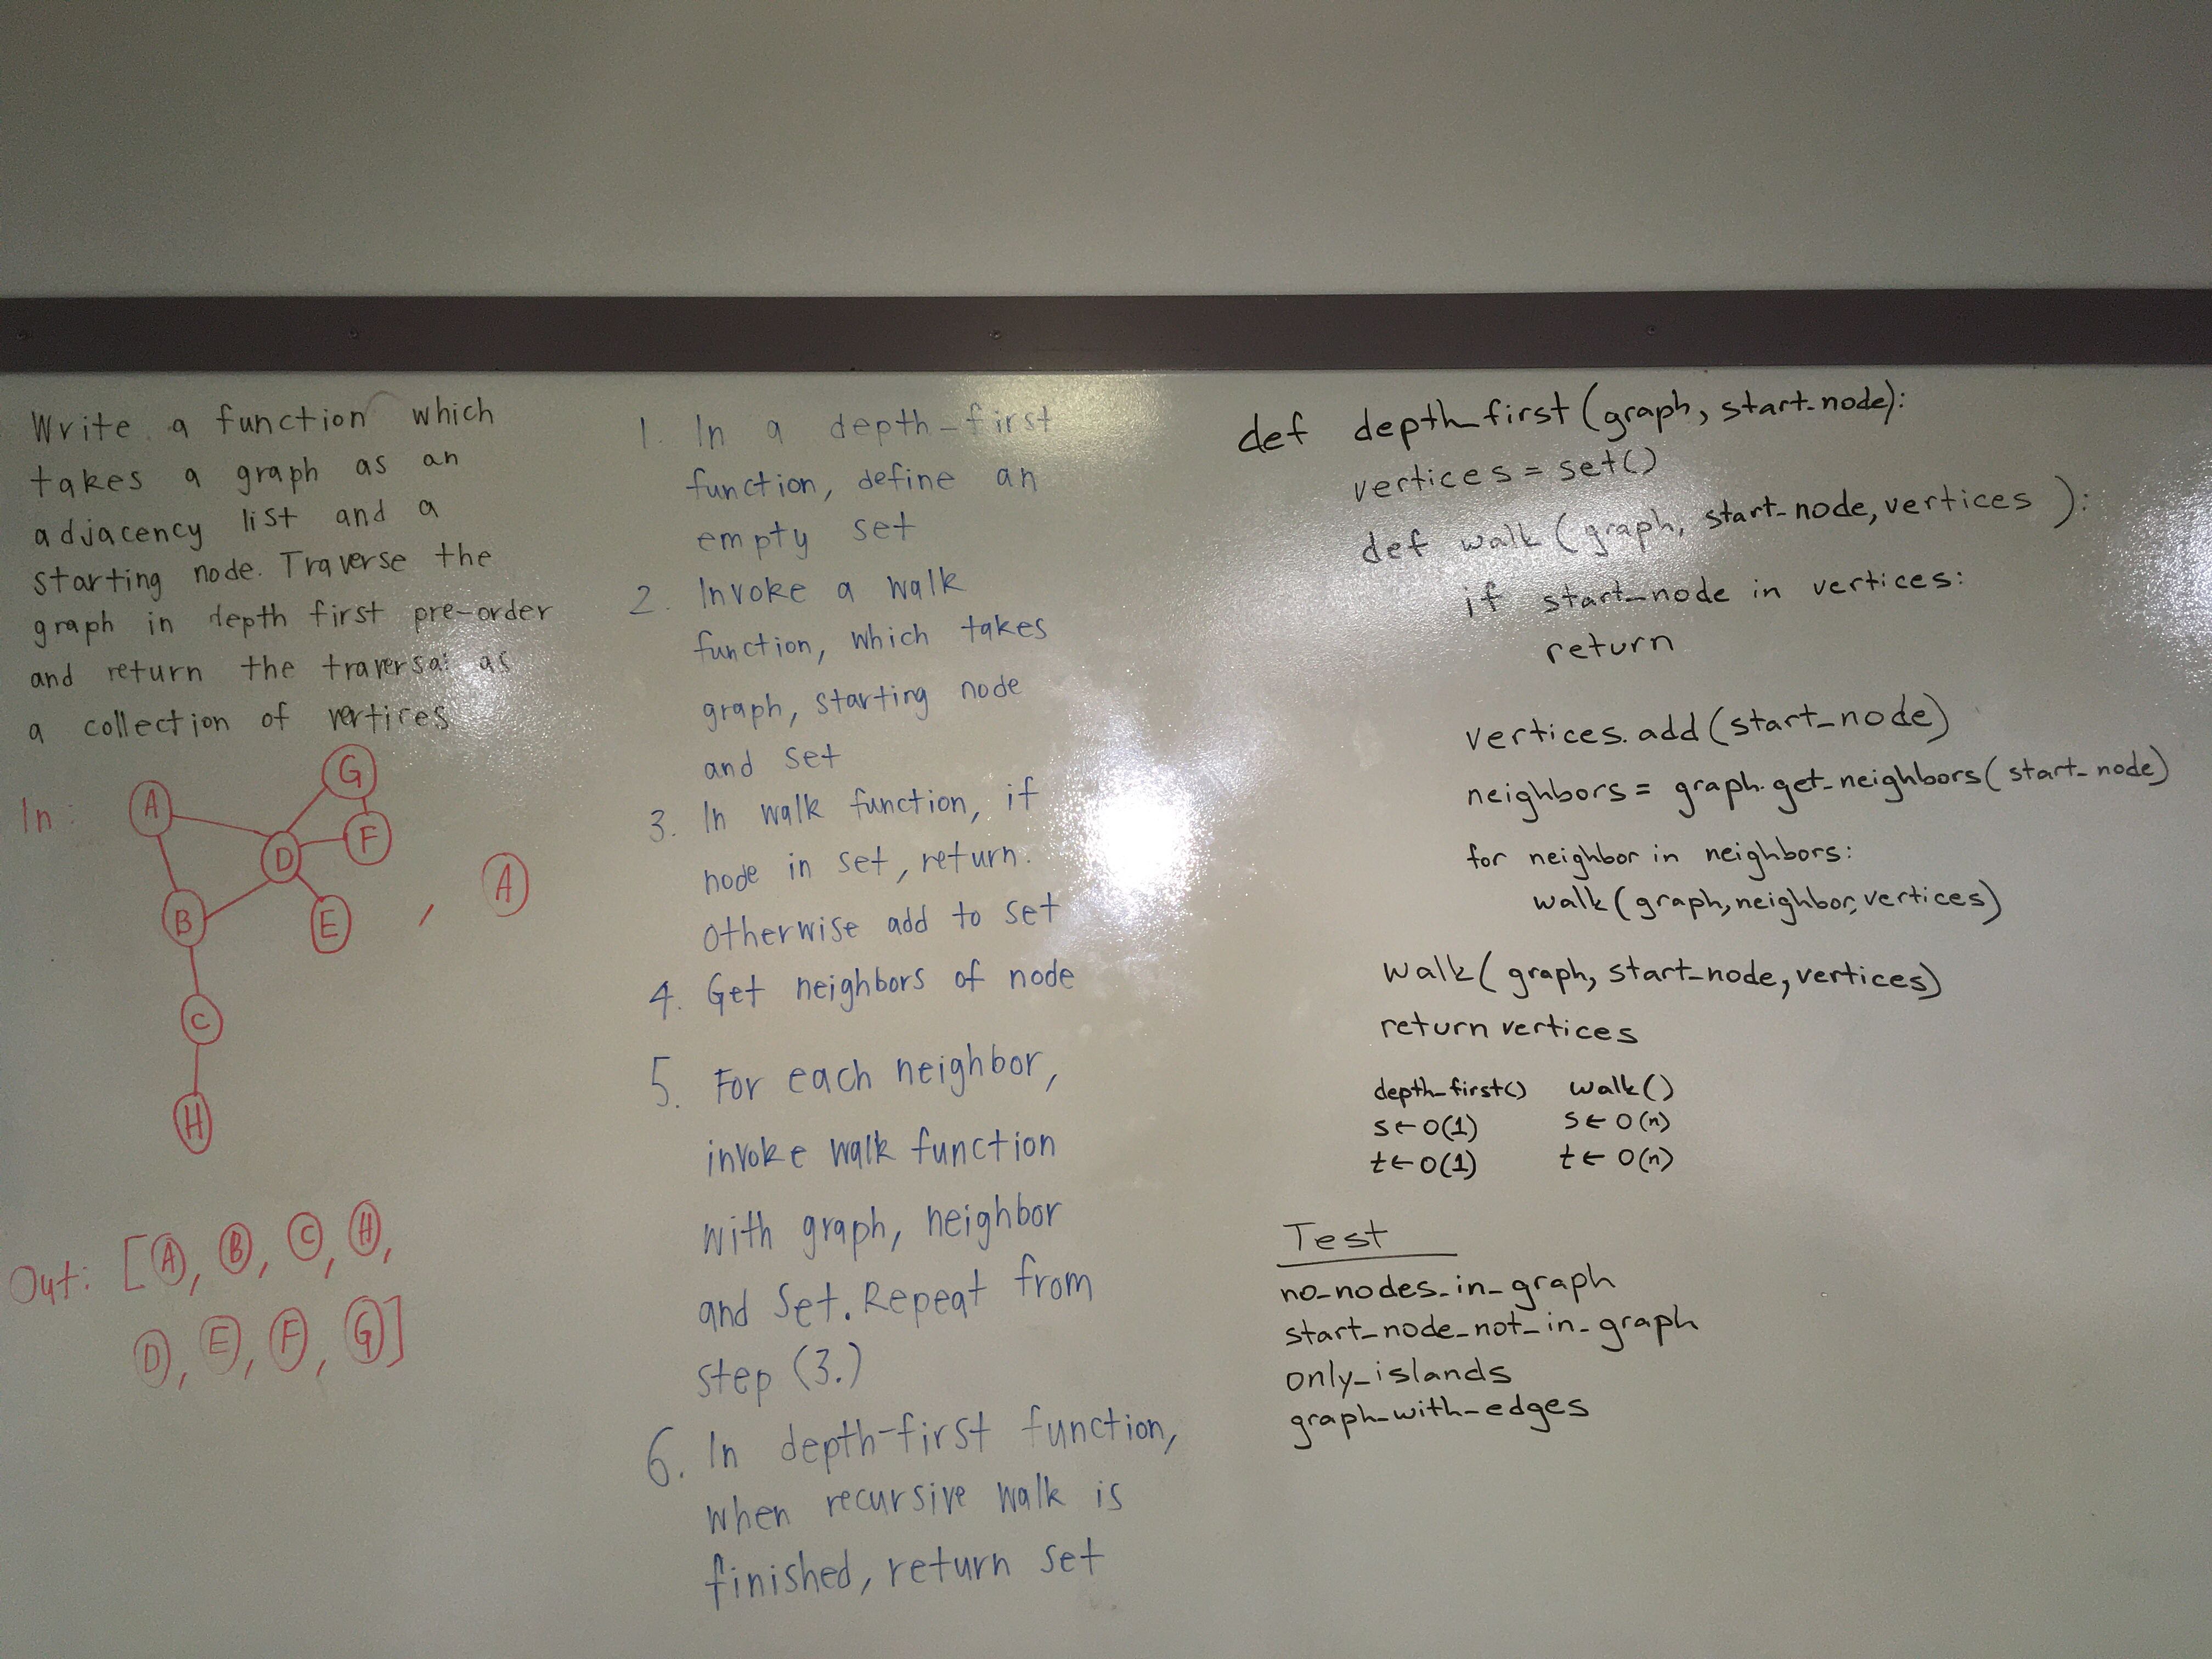 Write a function which
takes a graph as an
adjacency list and a
starting node. Traverse the
graph in depth first pre-order
and return the traversal as
a collection of vertices
In:
A
G
F
D
B
E
, A
C
H
Out: [A, B, C, H,
D, E, F, G]
1. In a depth-first
function, define an
empty set
2. Invoke a walk
function, which takes
graph, starting node
and set
3. In walk function, if
node in set, return.
otherwise add to set
4. Get neighbors of node
5. For each neighbor,
invoke walk function
with graph, neighbor
and set. Repeat from
step (3.)
6. In depth-first function,
when recursive walk is
finished, return set
def depth_first(graph, start_node):
vertices = set()
def walk (graph, start_node, vertices ):
if start_node in vertices:
return
vertices.add(start_node)
neighbors = graph.get_neighbors(start_node)
for neighbor in neighbors:
walk(graph, neighbor, vertices)
walk( graph, start_node, vertices)
return vertices
depth_first() walk()
s ← O(1) s ← O(n)
t ← O(1) t ← O(n)
Test
no_nodes_in_graph
start_node_not_in_graph
only_islands
graph_with_edges